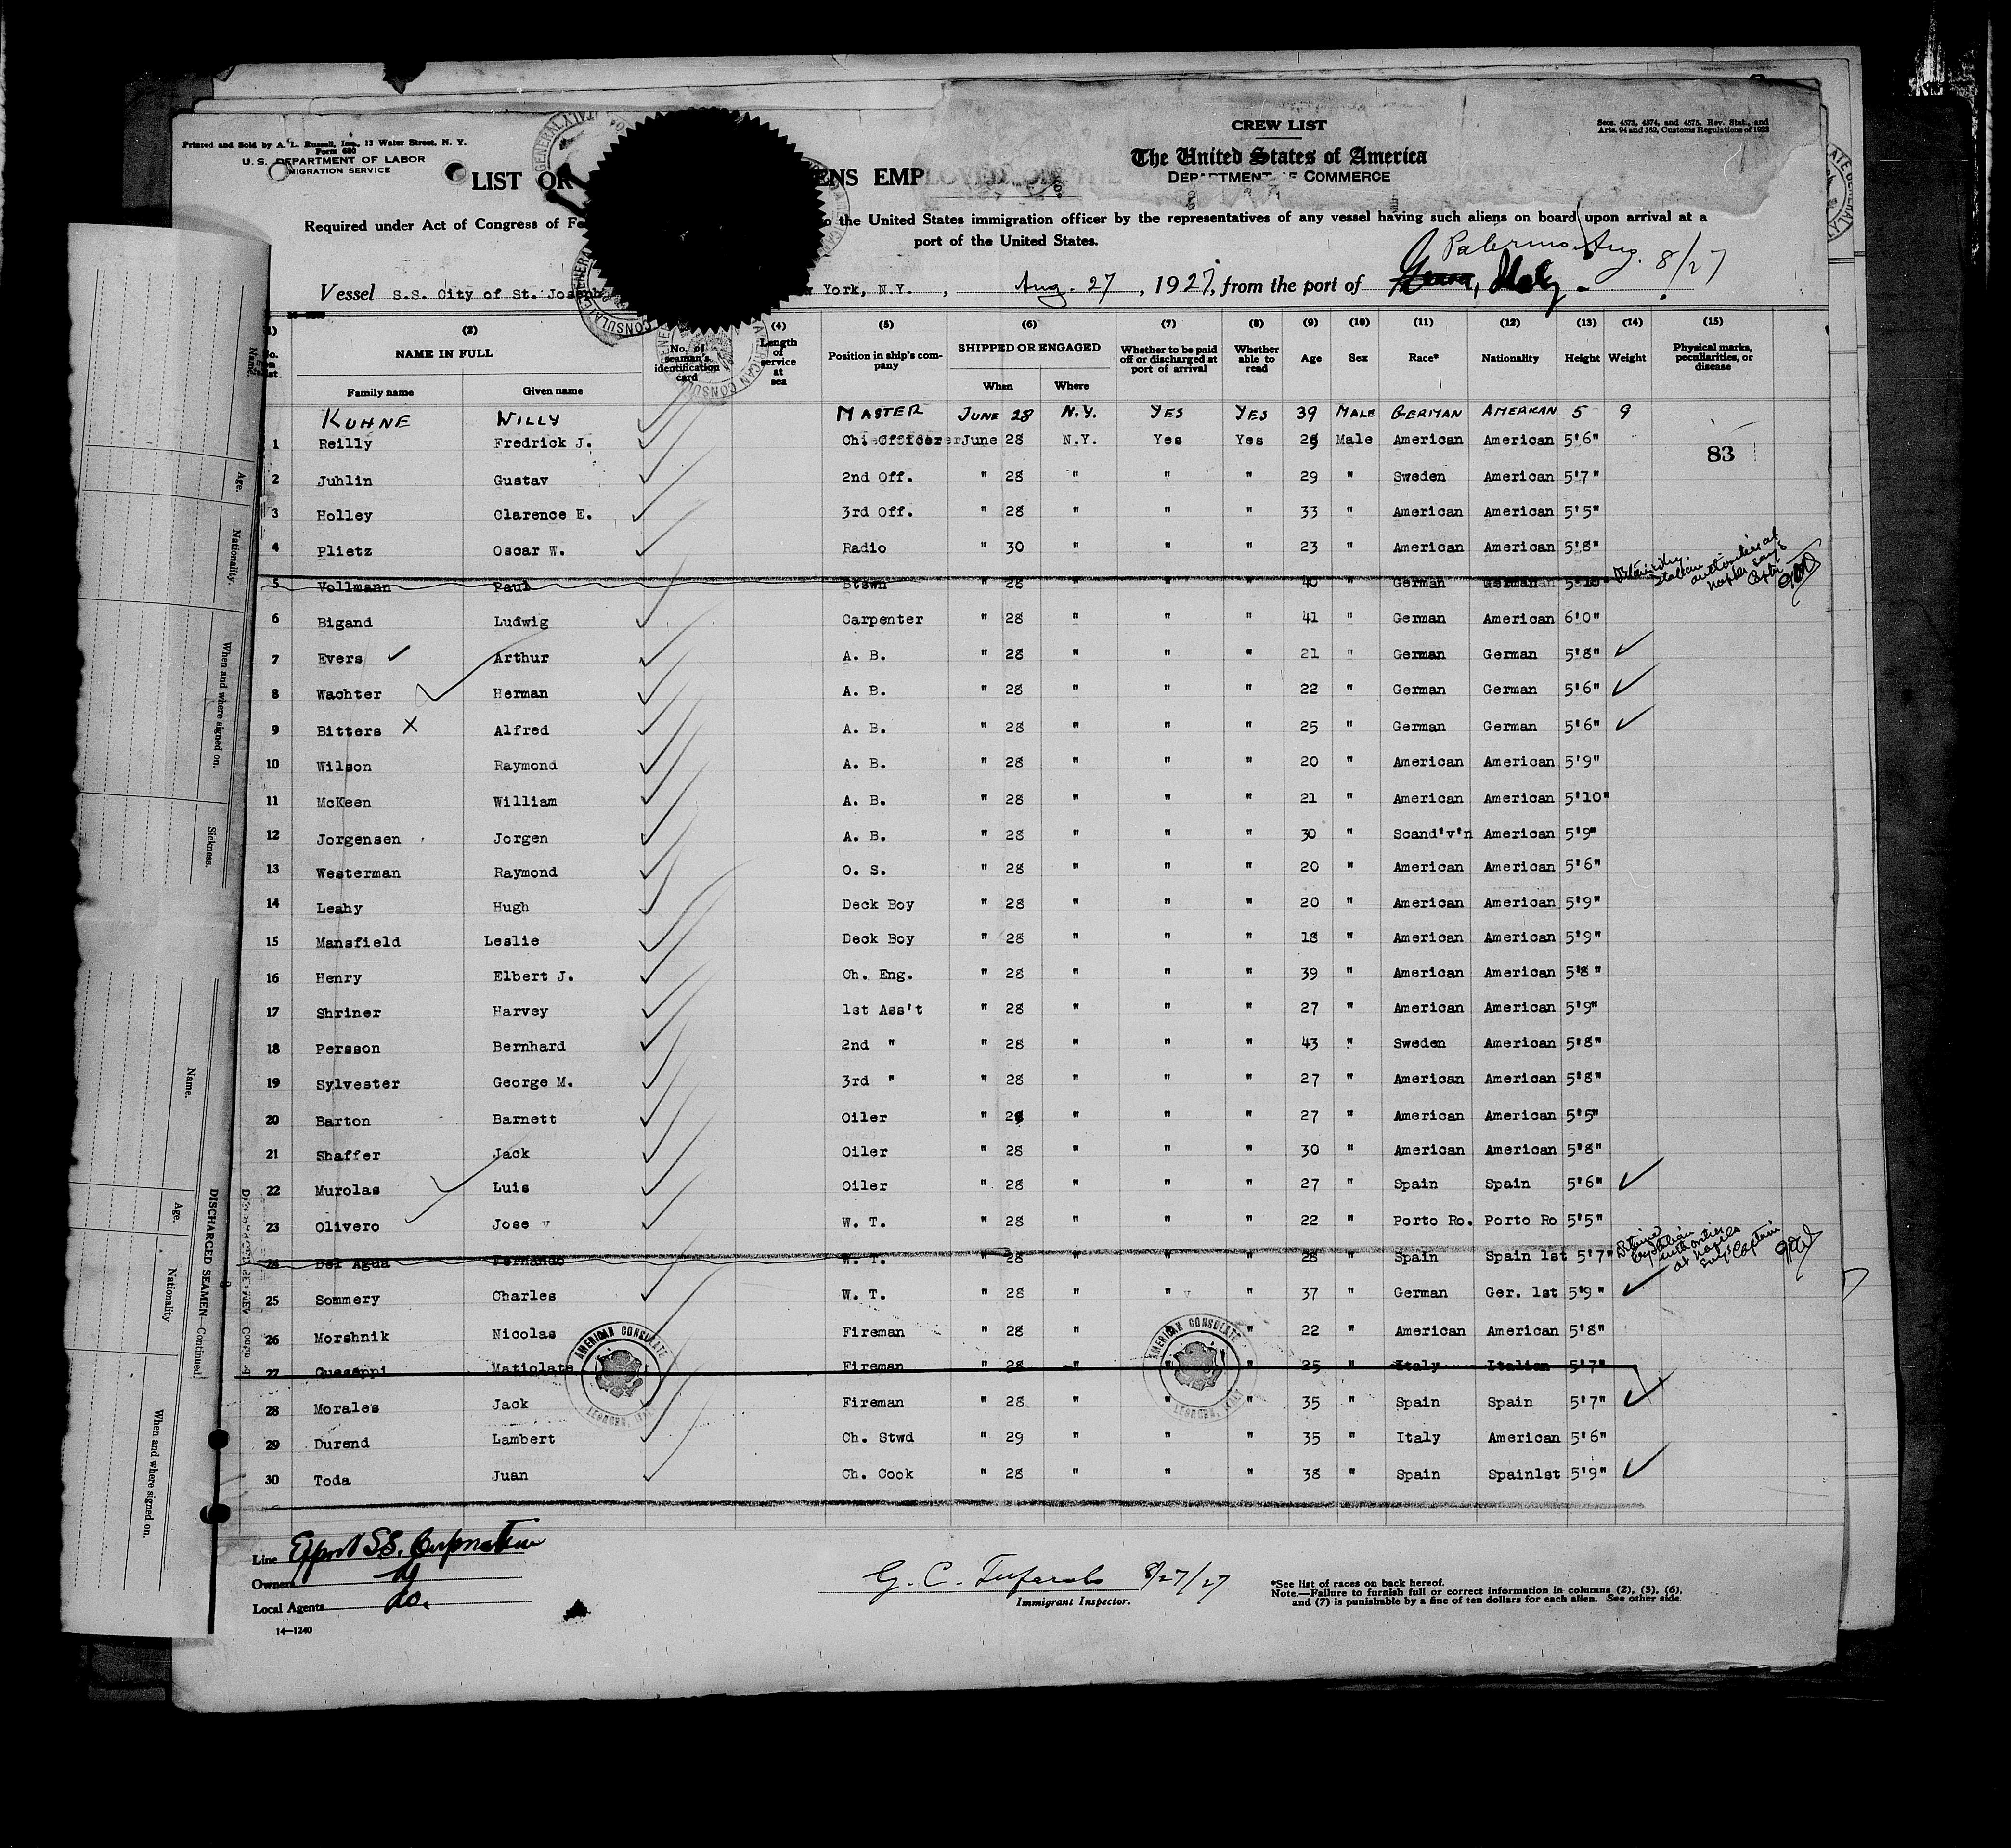 CREW LIST
Secs. 4573, 4574, and 4575, Rev. Stat., and
Arts. 94 and 162, Customs Regulations of 1923
Printed and Sold by A. L. Russell, Inc., 13 Water Street, N. Y.
Form 680
U. S. DEPARTMENT OF LABOR
MIGRATION SERVICE
The United States of America
DEPARTMENT OF COMMERCE
LIST OR ENS EMPLOYED ON THE
Required under Act of Congress of Fe o the United States immigration officer by the representatives of any vessel having such aliens on board upon arrival at a
port of the United States.
Palermo Aug. 8/27
Vessel S.S. City of St. Joseph w York, N.Y. , Aug. 27 , 1927, from the port of
(2) (4) (5) (6) (7) (8) (9) (10) (11) (12) (13) (14) (15)
No. on list NAME IN FULL Family name Given name No. of seaman's identification card Length of service at sea Position in ship's company SHIPPED OR ENGAGED When Where Whether to be paid off or discharged at port of arrival Whether able to read Age Sex Race* Nationality Height Weight Physical marks, peculiarities, or disease
KUHNE WILLY MASTER JUNE 28 N.Y. YES YES 39 MALE GERMAN AMERICAN 5 9
1 Reilly Fredrick J. Chi Officer June 28 N.Y. Yes Yes 29 Male American American 5'6"
83
2 Juhlin Gustav 2nd Off. " 28 " " " 29 " Sweden American 5'7"
3 Holley Clarence E. 3rd Off. " 28 " " " 33 " American American 5'5"
4 Plietz Oscar W. Radio " 30 " " " 23 " American American 5'8"
5 Vollmann Paul Btswn " 28 " " " 40 " German German 5'10" Italian authorities at Naples says Captain
6 Bigand Ludwig Carpenter " 28 " " " 41 " German American 6'0"
7 Evers Arthur A. B. " 28 " " " 21 " German German 5'8"
8 Wachter Herman A. B. " 28 " " " 22 " German German 5'6"
9 Bitters X Alfred A. B. " 28 " " " 25 " German German 5'6"
10 Wilson Raymond A. B. " 28 " " " 20 " American American 5'9"
11 McKeen William A. B. " 28 " " " 21 " American American 5'10"
12 Jorgensen Jorgen A. B. " 28 " " " 30 " Scand'v'n American 5'9"
13 Westerman Raymond O. S. " 28 " " " 20 " American American 5'6"
14 Leahy Hugh Deck Boy " 28 " " " 20 " American American 5'9"
15 Mansfield Leslie Deck Boy " 28 " " " 18 " American American 5'9"
16 Henry Elbert J. Ch. Eng. " 28 " " " 39 " American American 5'8"
17 Shriner Harvey 1st Ass't " 28 " " " 27 " American American 5'9"
18 Persson Bernhard 2nd " " 28 " " " 43 " Sweden American 5'8"
19 Sylvester George M. 3rd " " 28 " " " 27 " American American 5'8"
20 Barton Barnett Oiler " 28 " " " 27 " American American 5'5"
21 Shaffer Jack Oiler " 28 " " " 30 " American American 5'8"
22 Murolas Luis Oiler " 28 " " " 27 " Spain Spain 5'6"
23 Olivero Jose W. T. " 28 " " " 22 " Porto Ro. Porto Ro 5'5"
24 Del Agua Fernando W. T. " 28 " " " 28 " Spain Spain 1st 5'7" by Italian authorities at Naples says Captain
25 Sommery Charles W. T. " 28 " " " 37 " German Ger. 1st 5'9"
26 Morshnik Nicolas Fireman " 28 " " " 22 " American American 5'8"
27 Guseppi Matiolate Fireman " 28 " " " 25 " Italy Italian 5'7"
28 Morales Jack Fireman " 28 " " " 35 " Spain Spain 5'7"
29 Durend Lambert Ch. Stwd " 29 " " " 35 " Italy American 5'6"
30 Toda Juan Ch. Cook " 28 " " " 38 " Spain Spain1st 5'9"
AMERICAN CONSULATE
AMERICAN CONSULATE
Line Export S.S. Corporation
Owners do
Local Agents do.
14—1240
G. C. Tufarolo 8/27/27
Immigrant Inspector.
*See list of races on back hereof.
Note.—Failure to furnish full or correct information in columns (2), (5), (6),
and (7) is punishable by a fine of ten dollars for each alien. See other side.
Name. Age. Nationality. When and where signed on. Sickness.
DISCHARGED SEAMEN—Continued.
Name. Age. Nationality When and where signed on.